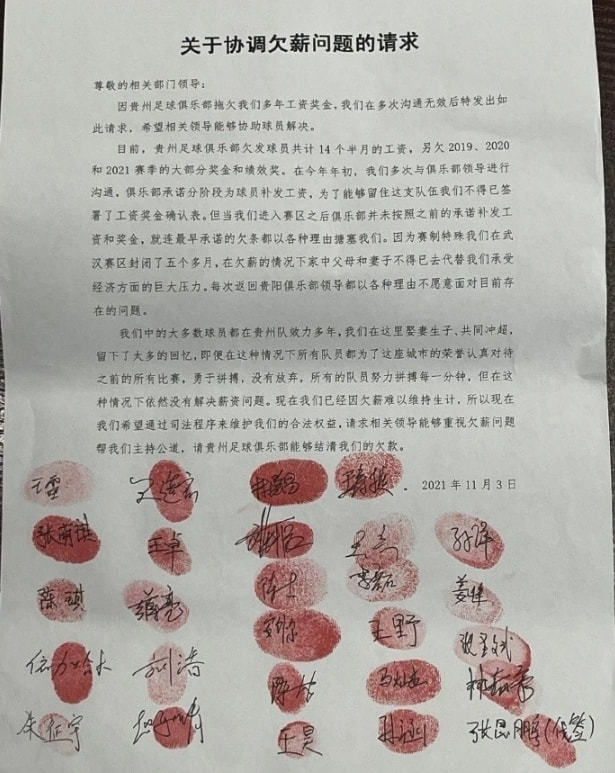 关于协调欠薪问题的请求
尊敬的相关部门领导:
因贵州足球俱乐部拖欠我们多年工资奖金,我们在多次沟通无效后特发出如
此请求,希望相关领导能够协助球员解决。
目前,贵州足球俱乐部欠发球员共计 14 个半月的工资,另欠 2019、2020
和 2021 赛季的大部分奖金和绩效奖。在今年年初,我们多次与俱乐部领导进行
沟通,俱乐部承诺分阶段为球员补发工资,为了能够留住这支队伍我们不得已签
署了工资奖金确认表。但当我们进入赛区之后俱乐部并未按照之前的承诺补发工
资和奖金,就连最早承诺的欠条都以各种理由搪塞我们。因为赛制特殊我们在武
汉赛区封闭了五个多月,在欠薪的情况下家中父母和妻子不得已去代替我们承受
经济方面的巨大压力。每次返回贵阳俱乐部领导都以各种理由不愿意面对目前存
在的问题。
我们中的大多数球员都在贵州队效力多年,我们在这里娶妻生子、共同冲超,
留下了太多的回忆,即便在这种情况下所有队员都为了这座城市的荣誉认真对待
之前的所有比赛,勇于拼搏,没有放弃,所有的队员努力拼搏每一分钟,但在这
种情况下依然没有解决薪资问题。现在我们已经因欠薪难以维持生计,所以现在
我们希望通过司法程序来维护我们的合法权益,请求相关领导能够重视欠薪问题
帮我们主持公道,请贵州足球俱乐部能够结清我们的欠款。
2021 年 11 月 3 日
张南琪 王卓
陈琪 蒋亮 姜佳
王野
刘涛
朱征宇 王昊 张昆鹏(代签)